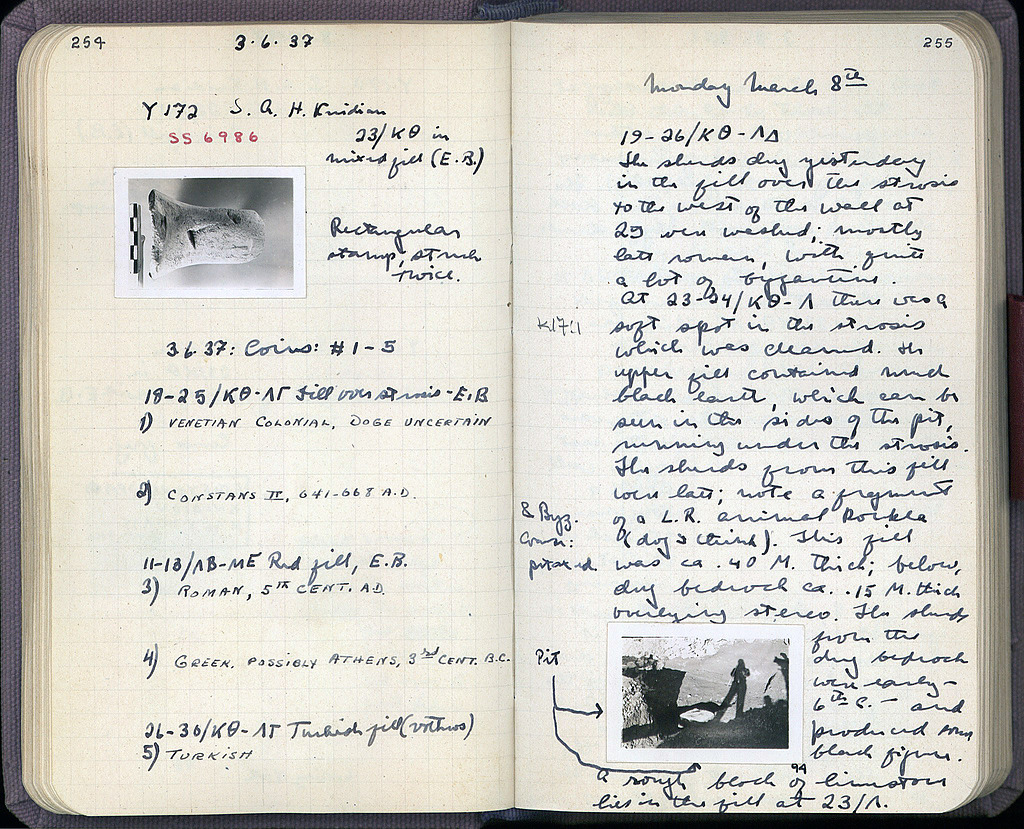 254
3·6·37
Y 172 S. A. H. Knidian
SS 6986
23/ΚΘ in
mixed fill (E.B.)
Rectangular
stamp, struck
twice.
3.6.37: Coins: #1-5
18-25/ΚΘ-ΛΓ Fill over strosis - E.B
1) VENETIAN COLONIAL, DOGE UNCERTAIN
2) CONSTANS II, 641-668 A.D.
11-13/ΛΒ-ΜΕ Red fill, E.B.
3) ROMAN, 5TH CENT. A.D.
4) GREEK. POSSIBLY ATHENS, 3rd CENT. B.C.
26-30/ΚΘ-ΛΓ Turkish fill (vothros)
5) TURKISH
255
Monday March 8th
19-26/ΚΘ-ΛΔ
The sherds dug yesterday
in the fill over the strosis
to the west of the wall at
29 were washed; mostly
late roman, with quite
a lot of byzantine.
At 23-24/ΚΘ-Λ there was a
soft spot in the strosis
which was cleaned. The
upper fill contained much
black earth, which can be
seen in the sides of the pit,
running under the strosis.
The sherds from this fill
were late; note a fragment
of a L.R. animal
(dog I think). This fill
was ca .40 M. thick; below,
dug bedrock ca. .15 M. thick
overlying stereo. The sherds
from the
dug bedrock
were early -
6th c. - and
produced some
black figure.
& Byz.
Pit
A rough block of limestone
lies in the fill at 23/Λ.